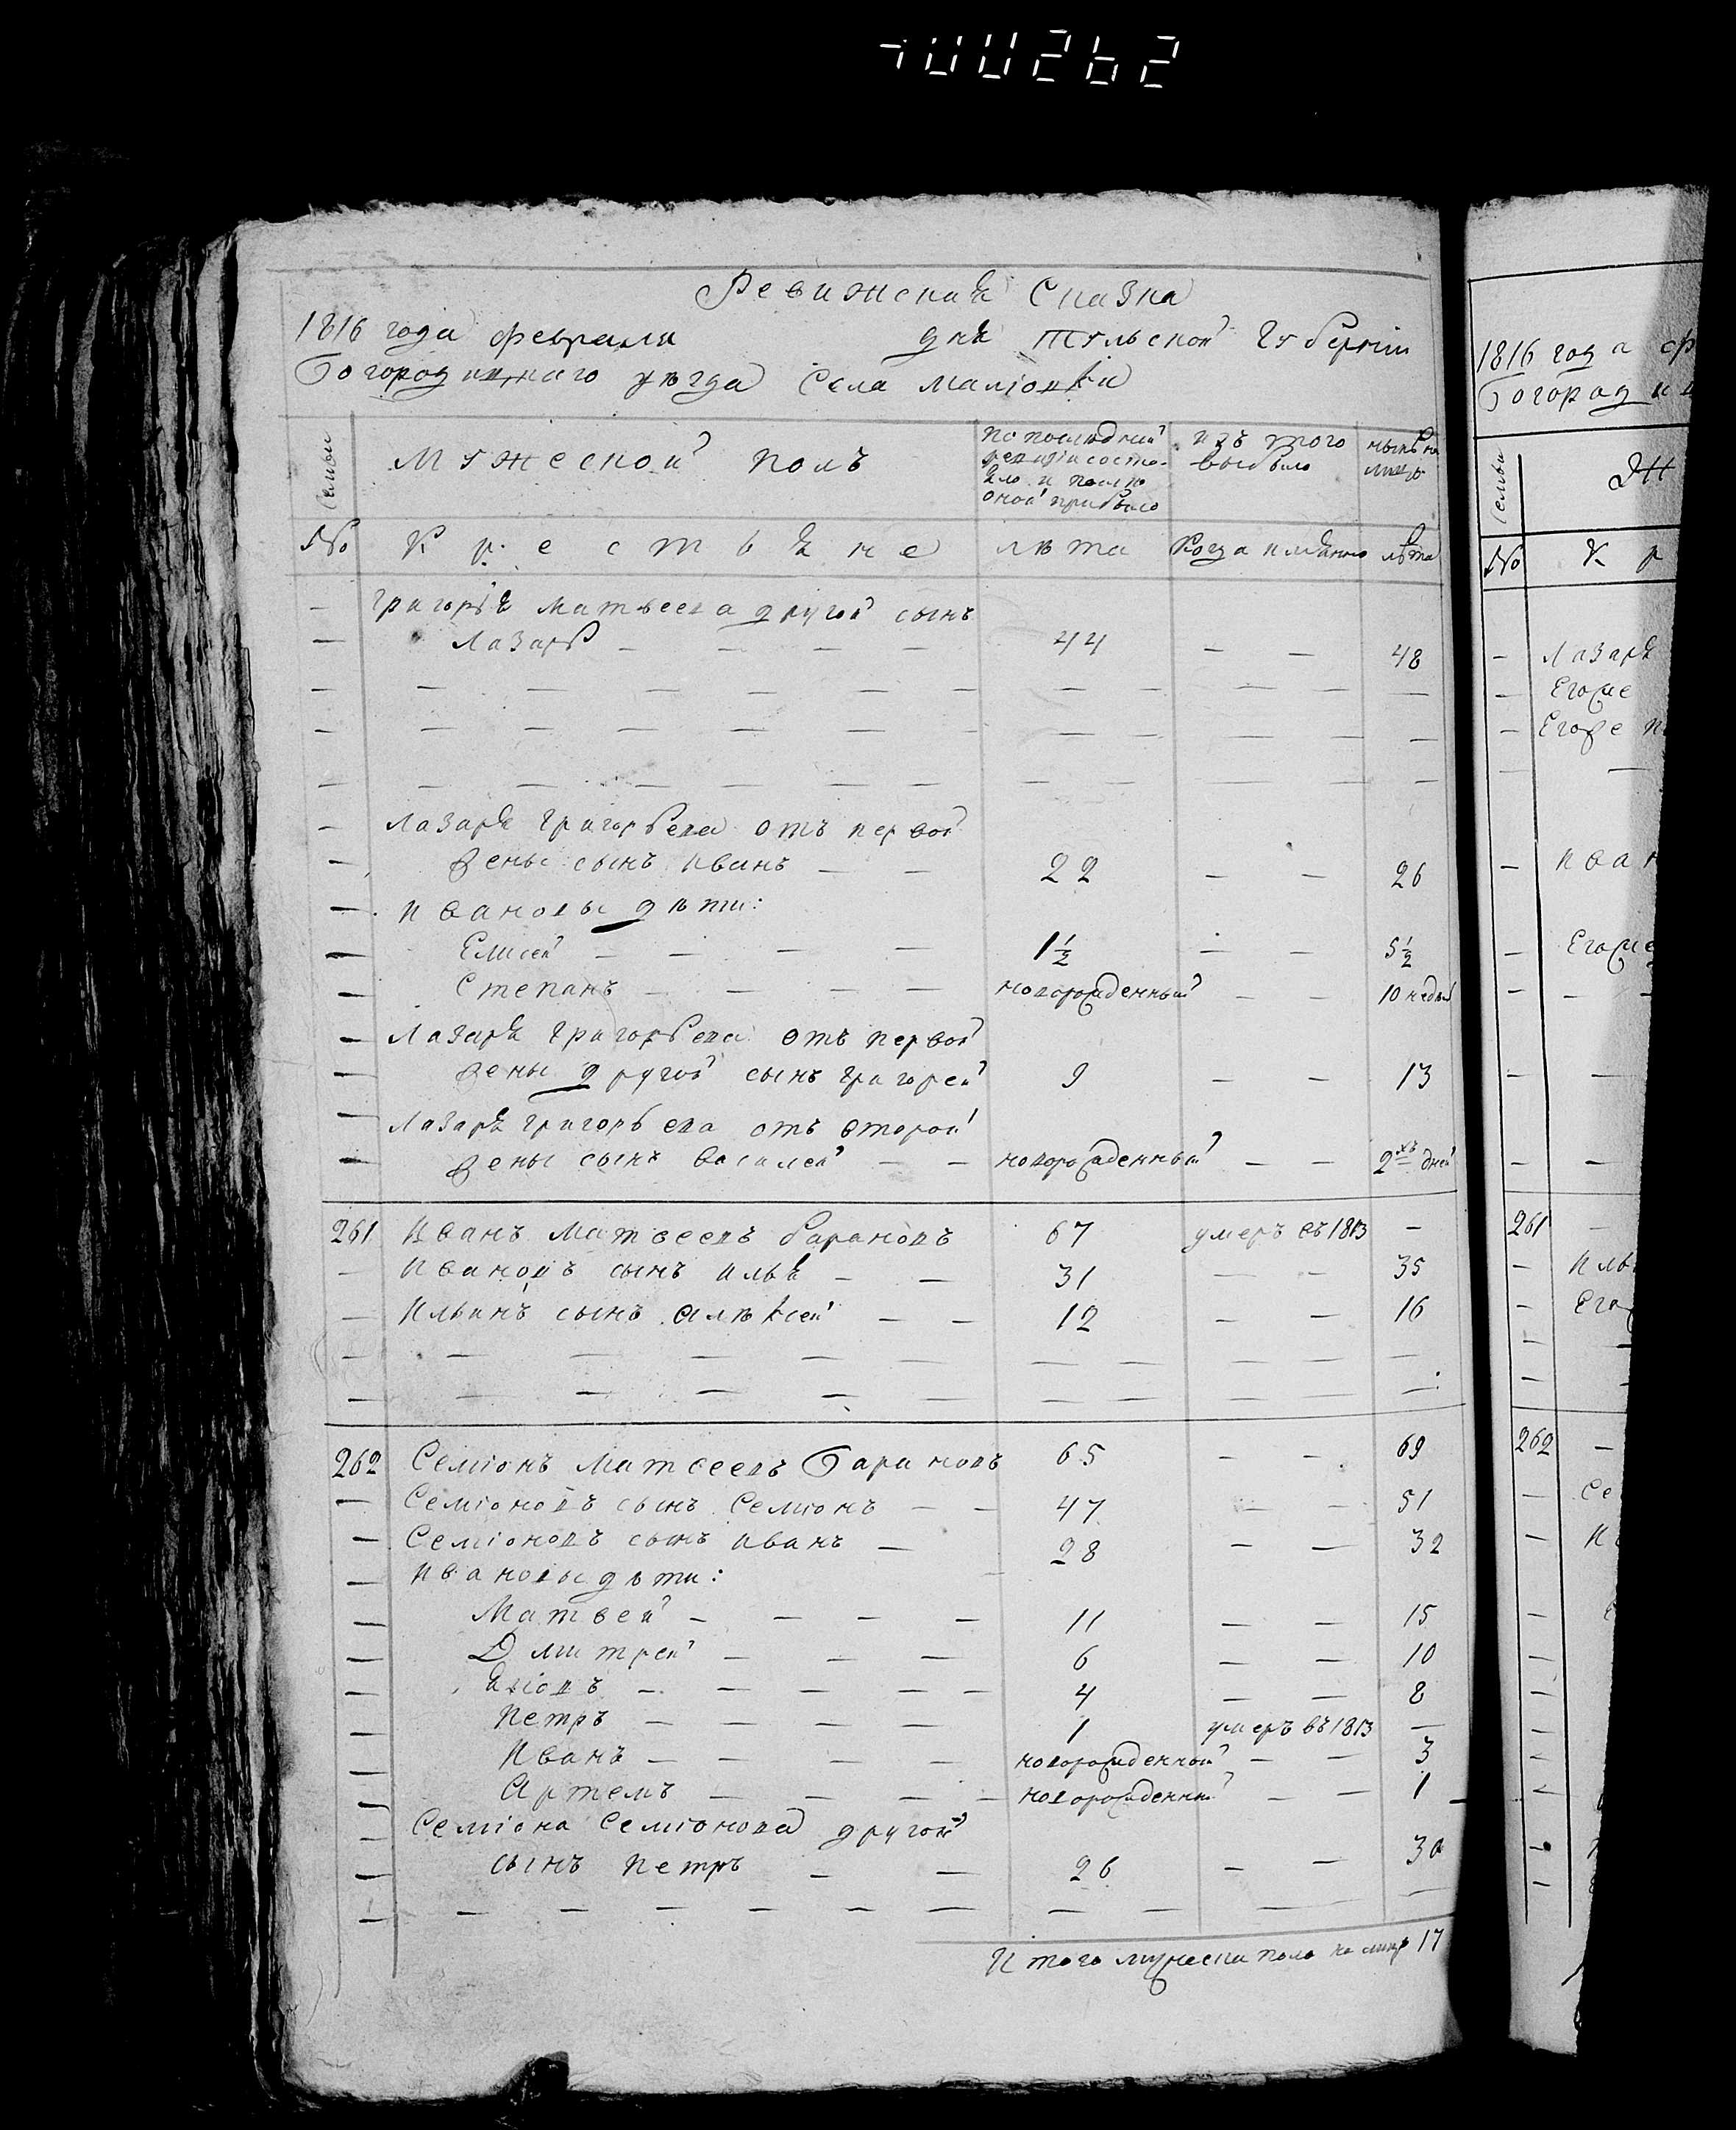 Ревижская Сказка
1816 года февраля дня Тульской Губернiи
Богородицкаго уѣзда Села Малiовки
семьи
Мужеской полъ
по последней ревизiи состояло и после оной прибыло
изъ того выбыло
ныне на лицо
№ Крестьяне лѣта Когда имянно лѣта
Григорiя Матвеева другой сынъ
Лазарь 44 48
Лазаря Григорьева отъ первой
жены сынъ Иванъ 22 26
Ивановы дѣти:
Елисей 1½ 5½
Степанъ новорожденный 10 недель
Лазаря Григорьева отъ первой
жены другой сынъ Григорей 9 13
Лазаря Григорьева отъ второй
жены сынъ Василей новорожденный 2хъ дней
261 Иванъ Матвеевъ Барановъ 67 умеръ въ 1813
Ивановъ сынъ Илья 31 35
Ильинъ сынъ Алѣксей 12 16
262 Семiонъ Матвеевъ Барановъ 65 69
Семiоновъ сынъ Семiонъ 47 51
Семiоновъ сынъ Иванъ 28 32
Ивановы дѣти:
Матвей 11 15
Дмитрей 6 10
Яковъ 4 8
Петръ 1 умеръ въ 1813
Иванъ новорожденной 3
Артемъ новорожденный 1
Семiона Семiонова другой
сынъ Петръ 26 30
Итого мужеска пола на лицо 17
1816 года ф
Богородиц
семьи
Ж
№ К р
Лазаря
Егоже
Егоже
Иван
Егоже
261
Иль
Его
262
Се
И